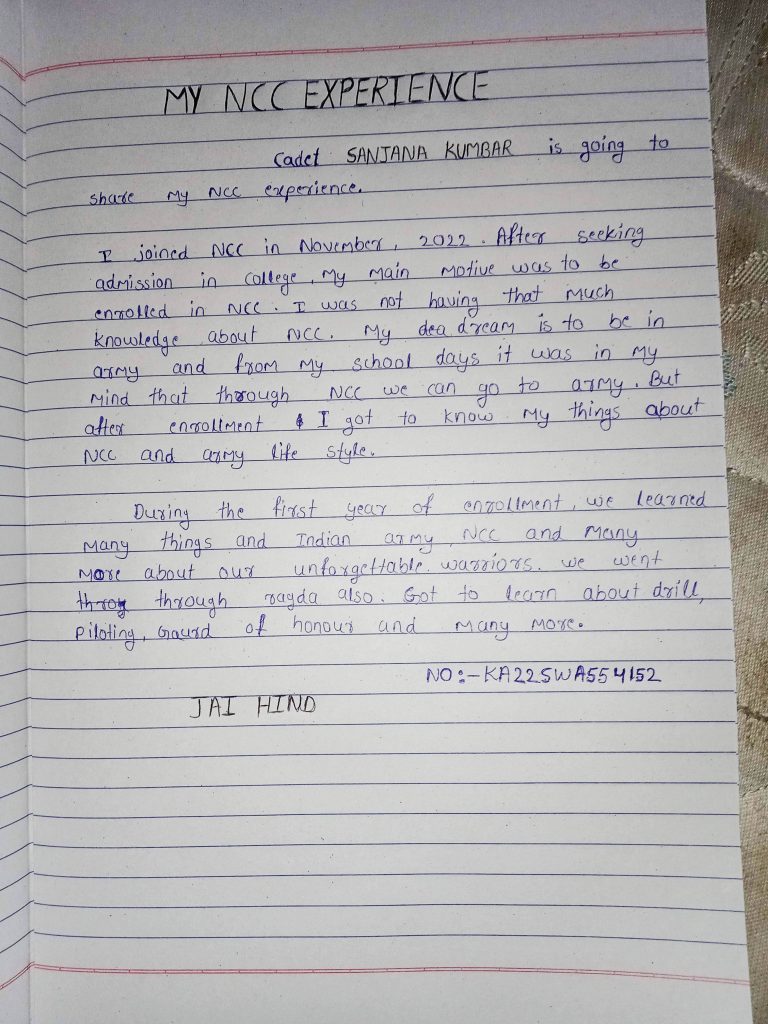 MY NCC EXPERIENCE
Cadet SANJANA KUMBAR is going to
share my NCC experience.
I joined NCC in November, 2022. After seeking
admission in college, my main motive was to be
enrolled in NCC. I was not having that much
knowledge about NCC. My dea dream is to be in
army and from my school days it was in my
mind that through NCC we can go to army. But
after enrollment I got to know my things about
NCC and army life style.
During the first year of enrollment, we learned
many things and Indian army, NCC and many
more about our unforgettable warriors. we went
throg through ragda also. Got to learn about drill,
Piloting, Gaurd of honour and many more.
NO:-KA22SWA554152
JAI HIND